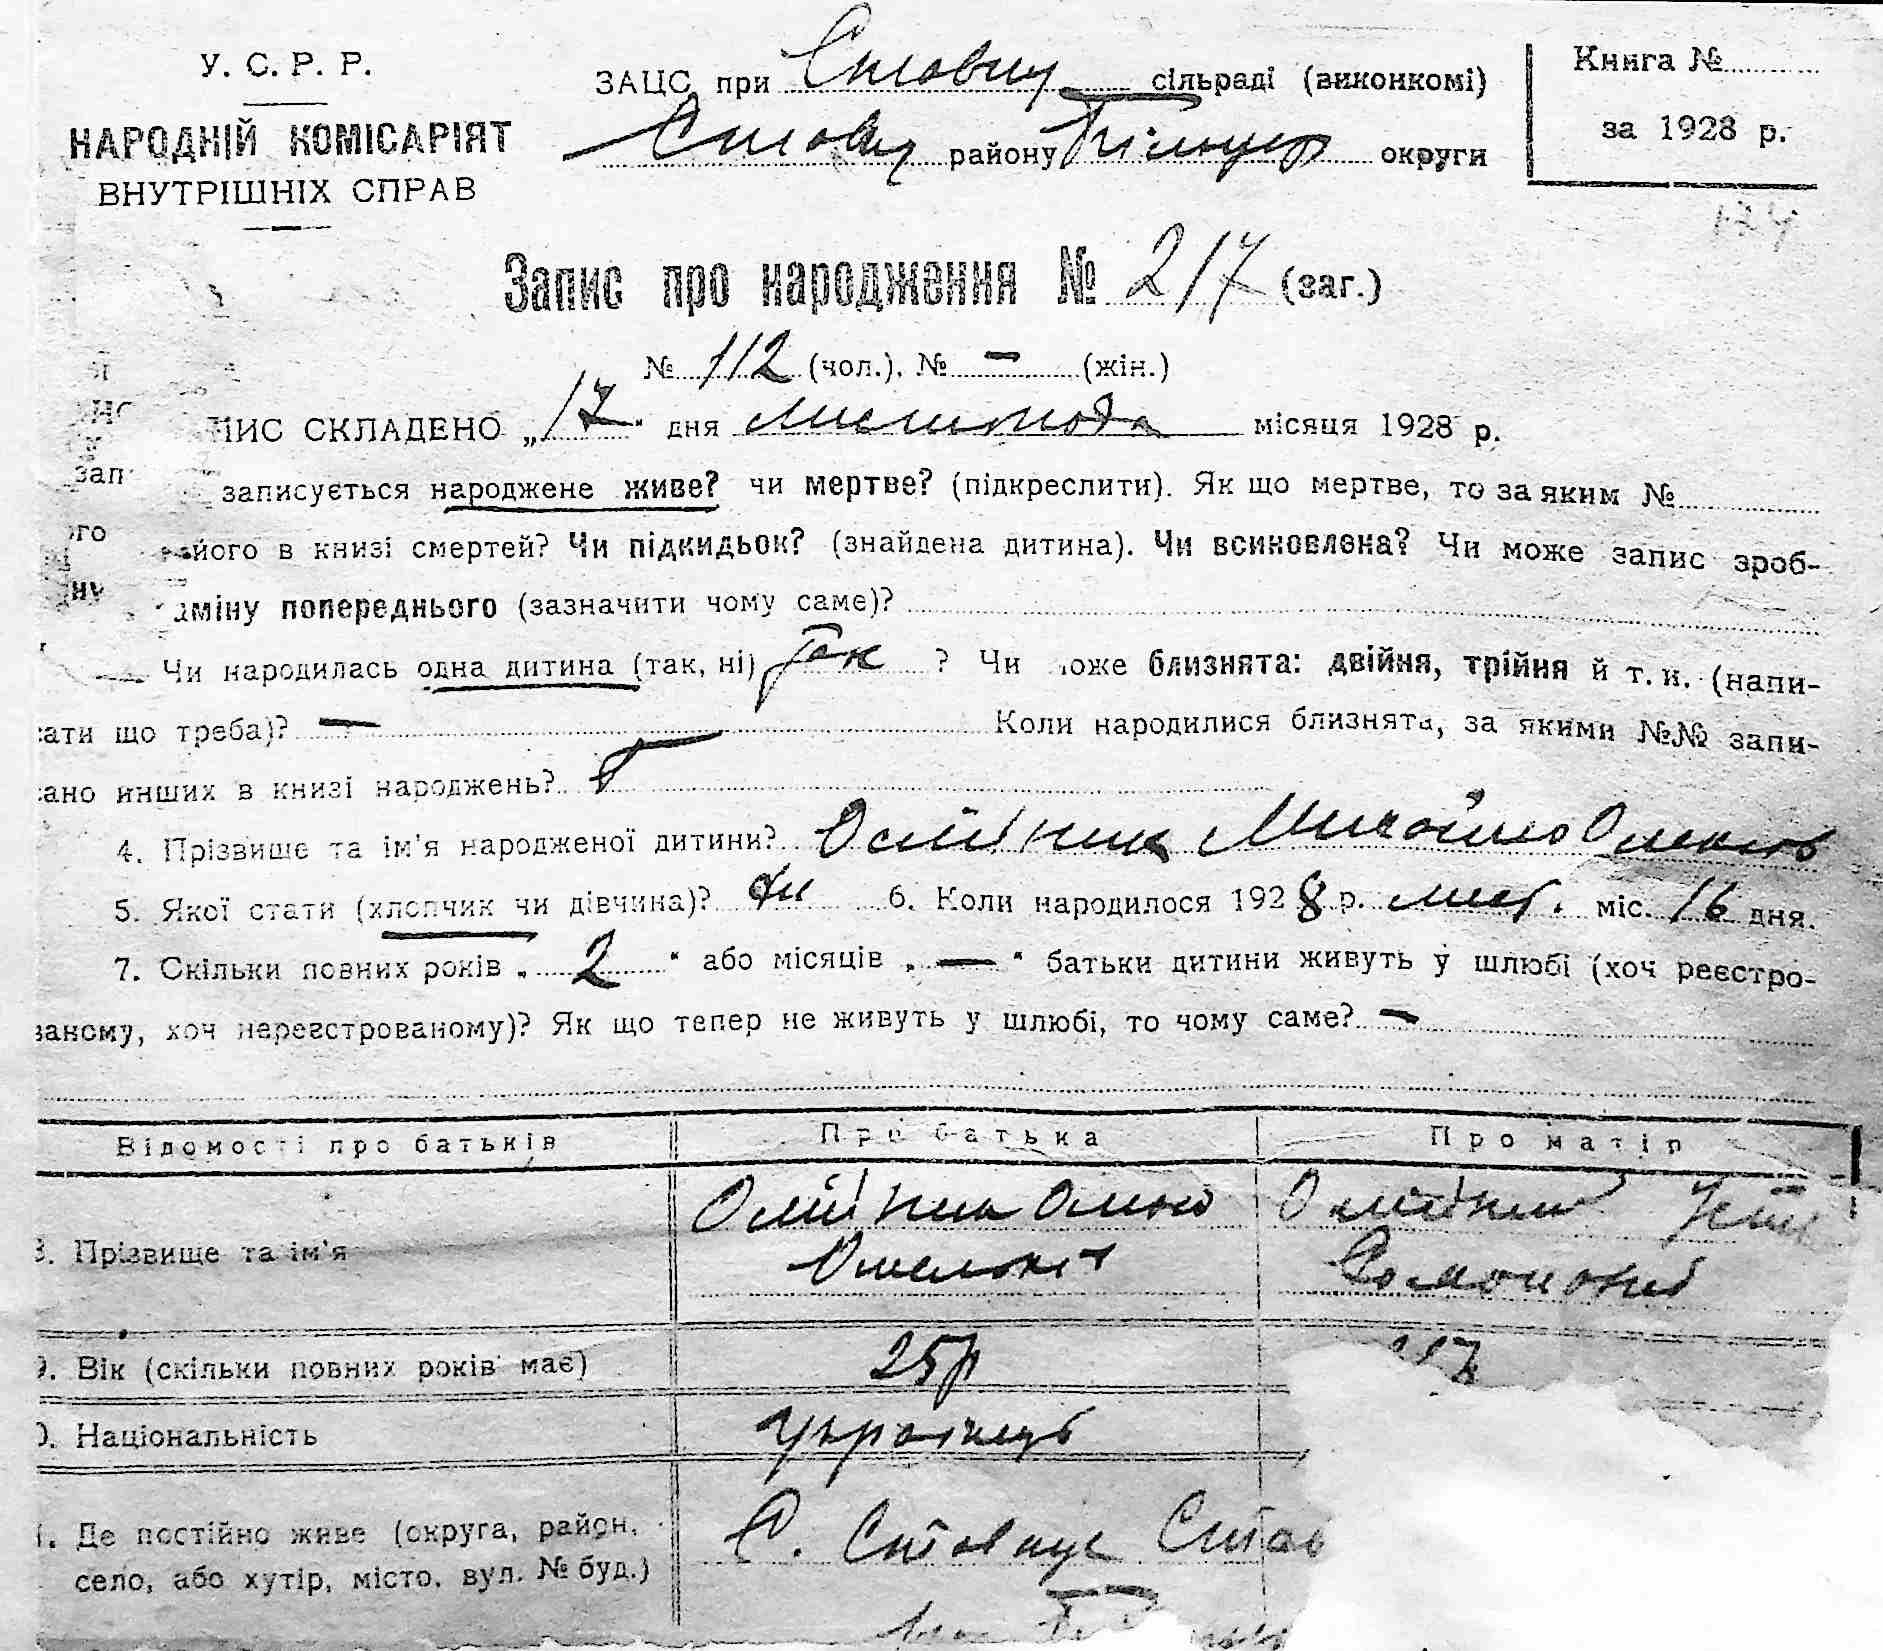 У. С. Р. Р.
НАРОДНІЙ КОМІСАРІЯТ
ВНУТРІШНІХ СПРАВ
ЗАЦС при сільраді (виконкомі)
району округи
Книга №
за 1928 р.
174
Запис про народження № 217 (заг.)
№ 112 (чол.), № — (жін.)
ПИС СКЛАДЕНО „17" дня листопода місяця 1928 р.
записується народжене живе? чи мертве? (підкреслити). Як що мертве, то за яким №
його в книзі смертей? Чи підкидьок? (знайдена дитина). Чи всиновлена? Чи може запис зроб-
аміну попереднього (зазначити чому саме)?
Чи народилась одна дитина (так, ні) Так ? Чи може близнята: двійня, трійня й т. и. (напи-
сати що треба)? — Коли народилися близнята, за якими №№ запи-
сано инших в книзі народжень?
4. Прізвище та ім'я народженої дитини? Олійник Михайло
5. Якої стати (хлопчик чи дівчина)? 6. Коли народилося 1928 р. лист. міс. 16 дня.
7. Скільки повних років „2" або місяців „—" батьки дитини живуть у шлюбі (хоч реєстро-
ваному, хоч нереєстрованому)? Як що тепер не живуть у шлюбі, то чому саме? —
Відомості про батьків Про батька Про матір
8. Прізвище та ім'я Олійник Олійник
9. Вік (скільки повних років має) 25 р
0. Національність Українець
1. Де постійно живе (округа, район, С. Ставище Став
село, або хутір, місто, вул. № буд.)